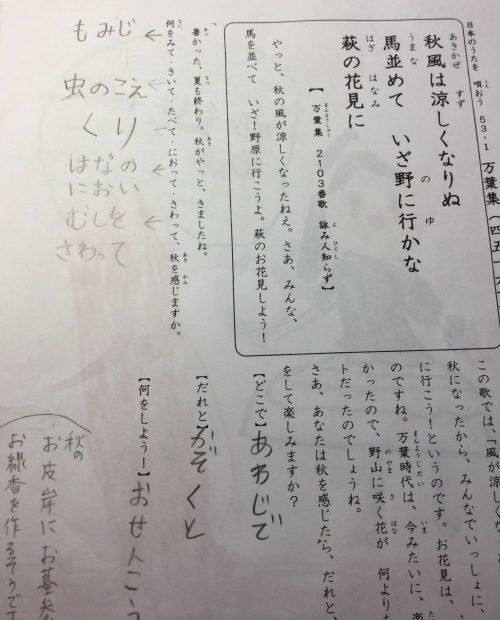 日本のうたを 唄おう 53.1 万葉集
秋風は涼しくなりぬ
馬並めて いざ野に行かな
萩の花見に
【 万葉集 2103番歌 詠み人知らず】
やっと、秋の風が涼しくなったねえ。さあ、みんな、
馬を並べて いざ!野原に行こうよ。萩のお花見しよう!
暑かった、夏も終わり。秋がやっと、きましたね。
何をみて・きいて・たべて・におって・さわって、秋を感じますか。
もみじ ←
虫のこえ ←
くり ←
はなの
におい ←
むしを
さわって ←
この歌では、「風が涼しくな
秋になったから、みんなでいっしょに、
に行こう!というのです。お花見は、
のですね。万葉時代は、今みたいに、
かったので、 野山に咲く花が 何より
トだったのでしょうね。
さあ、あなたは秋を感じたら、だれと、
をして楽しみますか?
【どこで】あわじで
【だれと】かぞくと
【何をしよう!】おせんこう
秋の
お皮岸にお墓参
お線香を作るそうです